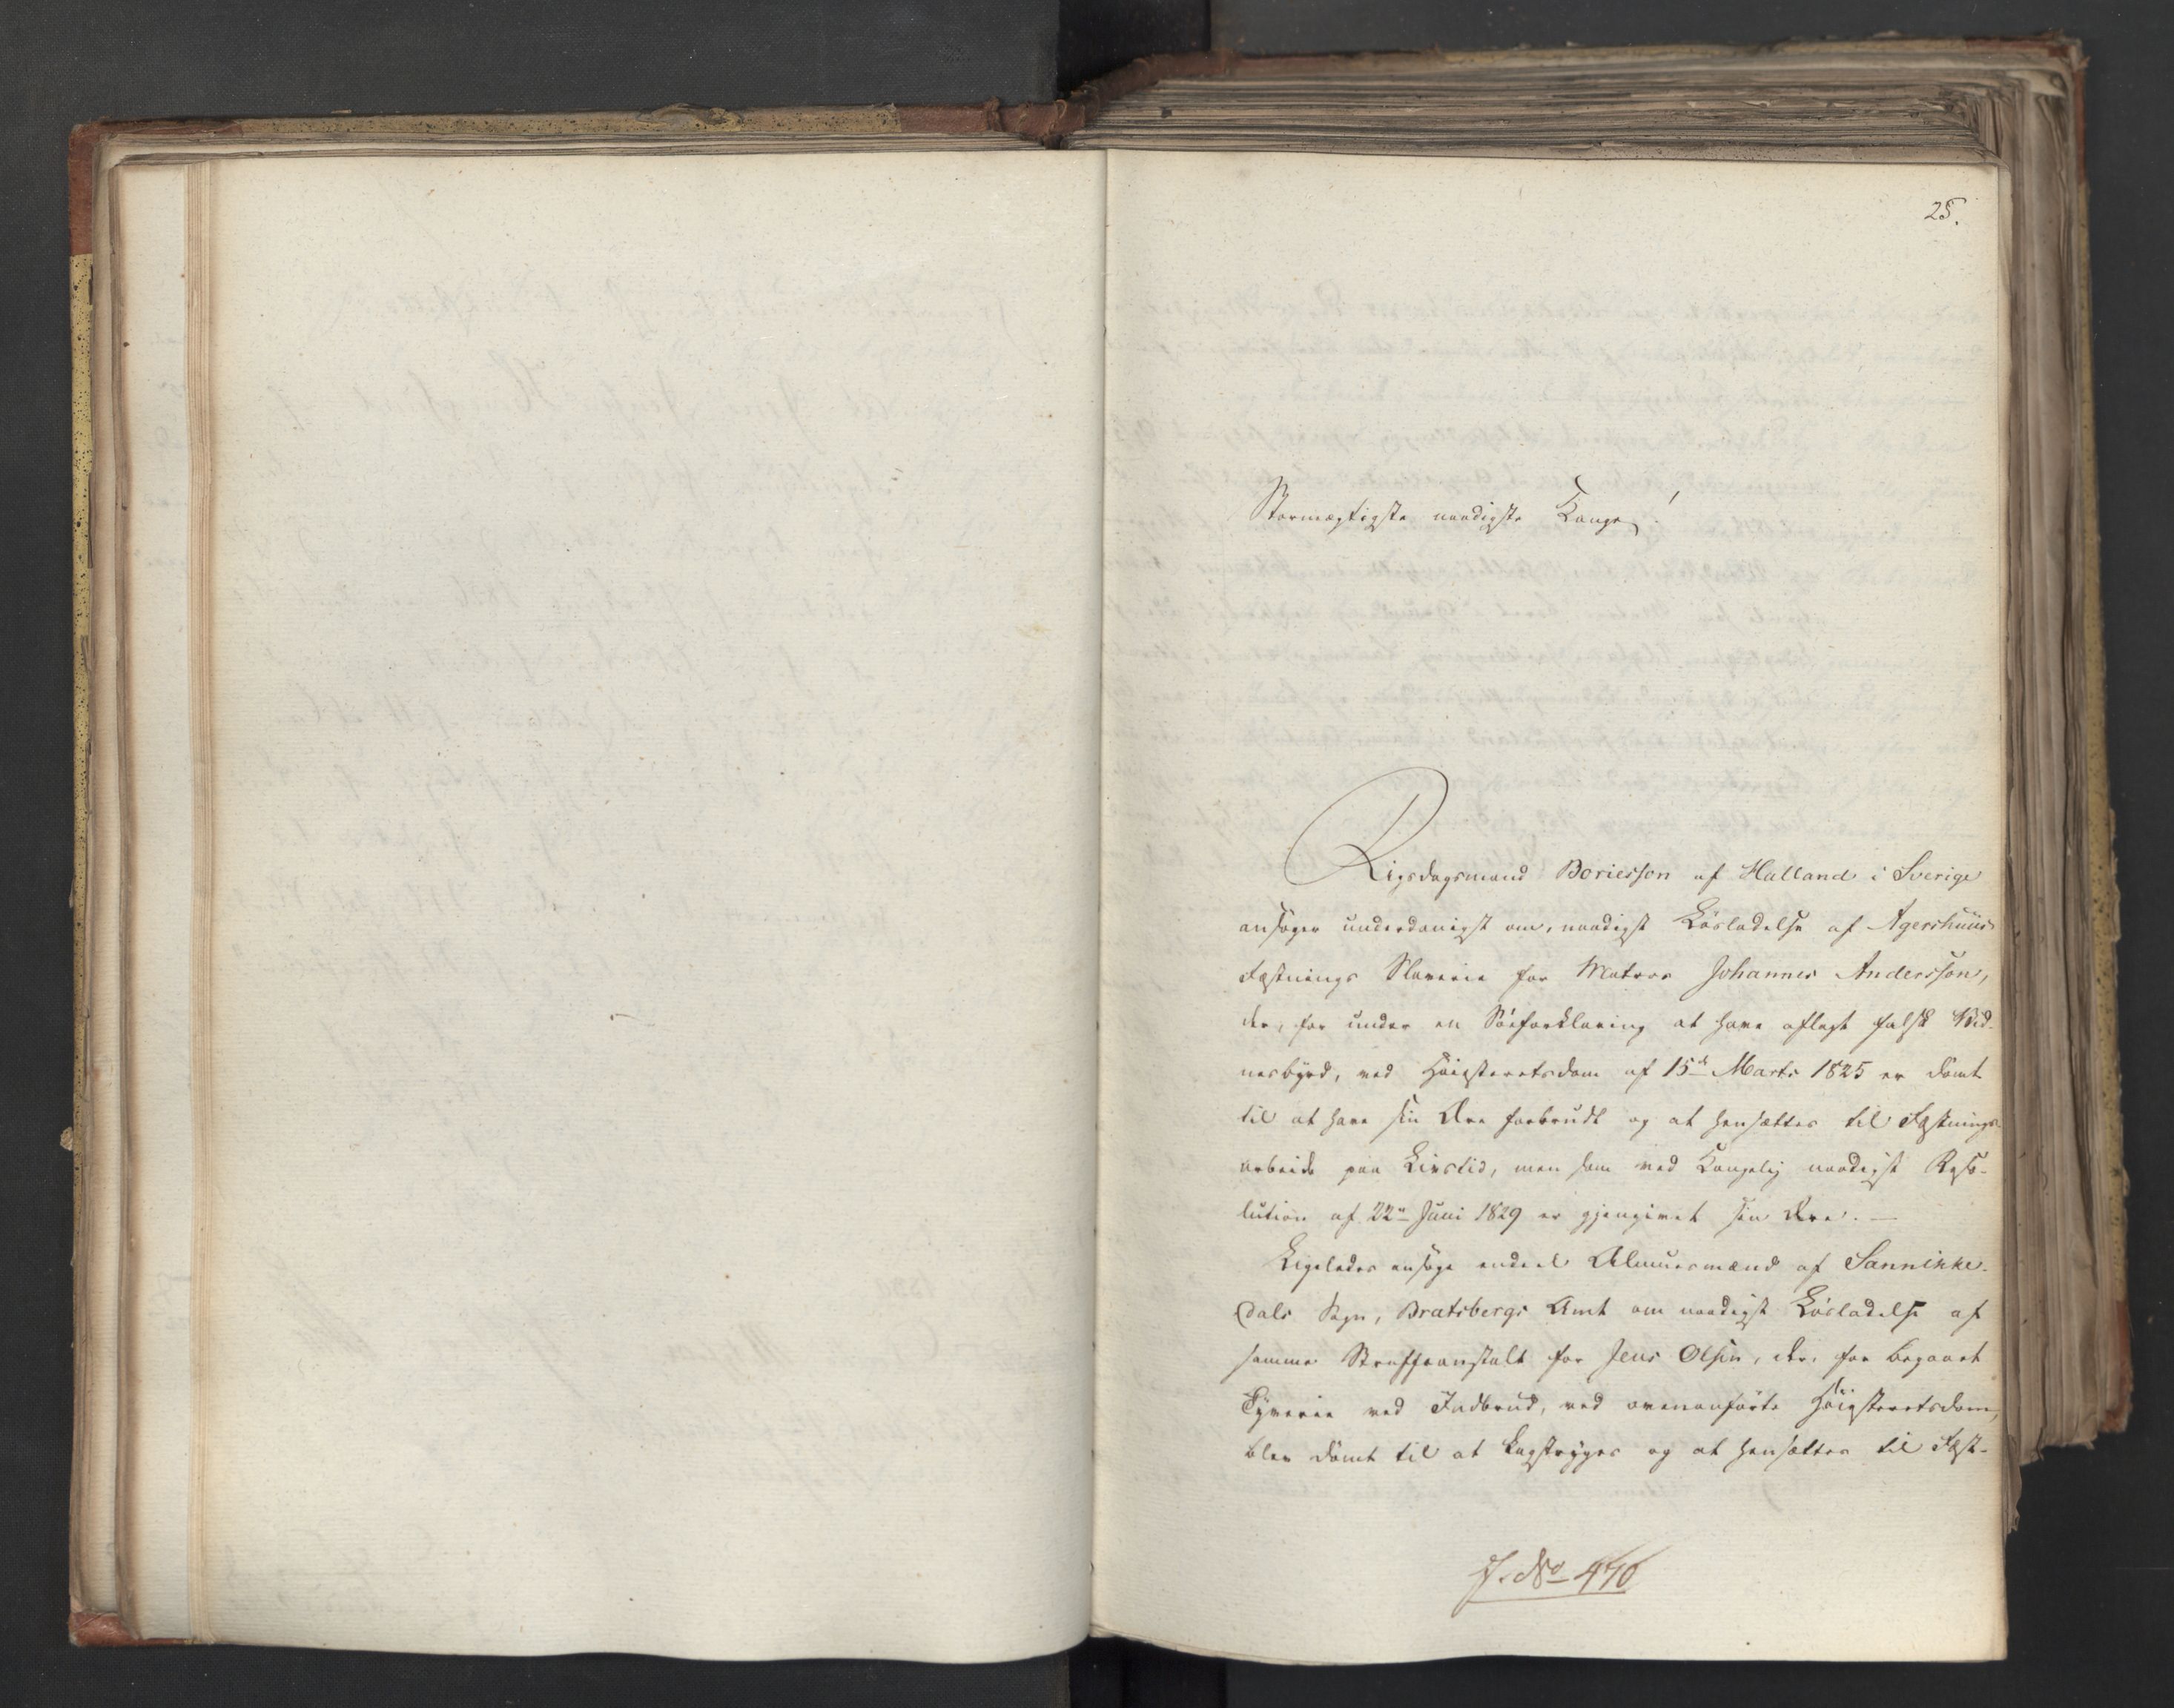 25.
Stormægtigste naadigste Konge!
Rigsdagsmand Boriesson af Halland i Sverige
ansøger underdanigst om, naadigst Løsladelse af Agershuus
Fæstnings Slaverie for Matros Johannes Andersson,
der, for under en Søeforklaring at have aflagt falsk Vid-
nesbyrd, ved Høiesteretsdom af 15de Marts 1825 er dømt
til at have sin Ære forbrudt og at hensættes til Fæstnings-
arbeide paa Livstid, men som ved Kongelig naadigst Reso-
lution af 22de Juni 1829 er gjengivet sin Ære. —
Ligeledes ansøge endeel Almuesmænd af Sannikke-
dals Sogn, Bratsbergs Amt om naadigst Løsladelse af
samme Straffeanstalt for Jens Olsen, der, for begaaet
Tyverie ved Indbrud, ved ovenanførte Høiesteretsdom,
blev dømt til at kagstryges og at hensættes til Fæst-
J. No 470